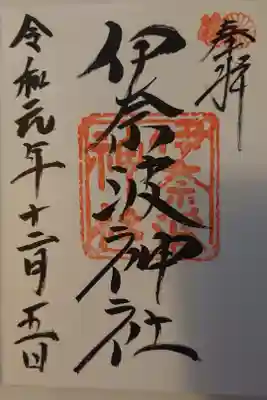 奉拝
伊奈波神社
令和元年十二月五日